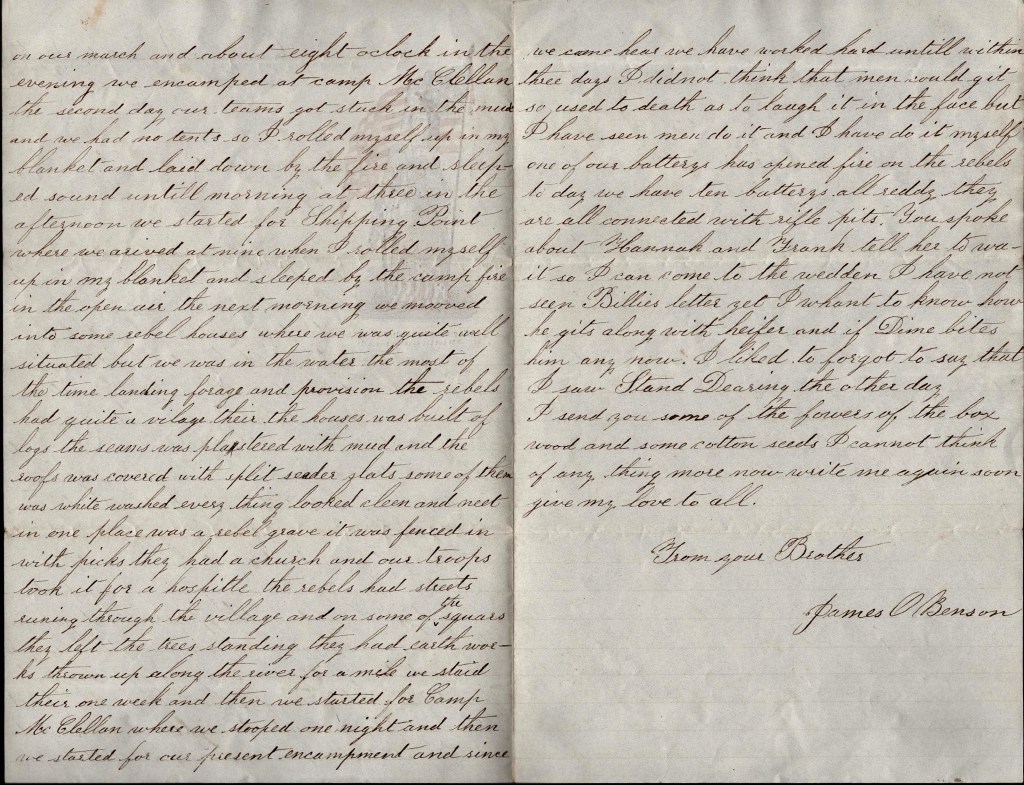 on our march and about eight oclock in the
evening we encamped at camp Mc Clellan
the second day our teams got stuck in the mud
and we had no tents so I rolled myself up in my
blanket and laid down by the fire and sleep-
ed sound untill morning at three in the
afternoon we started for Shipping Point
where we arived at nine when I rolled myself
up in my blanket and sleeped by the camp fire
in the open air the next morning we mooved
into some rebel houses where we was quite well
situated but we was in the water the most of
the time landing forage and provision the rebels
had quite a vilage their the houses was built of
logs the seams was plastered with mud and the
roofs was covered with split seader slats some of them
was white washed every thing looked cleen and neet
in one place was a rebel grave it was fenced in
with picks they had a church and our troops
took it for a hospitle the rebels had streets
runing through the village and on some of the squars
they left the trees standing they had earth wor-
ks thrown up along the river for a mile we staid
their one week and then we started for Camp
Mc Clellan where we stooped one night and then
we started for our present encampment and since
we came hear we have worked hard untill within
three days I did not think that men could git
so used to death as to laugh it in the face but
I have seen men do it and I have do it myself
one of our batterys has opened fire on the rebels
to day we have ten batterys all reddy they
are all connected with rifle pits. You spoke
about Hannah and Frank tell her to wa-
it so I can come to the wedden I have not
seen Billies letter yet I whant to know how
he gits along with heifer and if Dime bites
him any now. I liked to forgot to say that
I saw Stand Dearing the other day
I send you some of the fowers of the box
wood and some cotton seeds I cannot think
of any thing more now write me again soon
give my love to all.
From your Brother
James O Benson